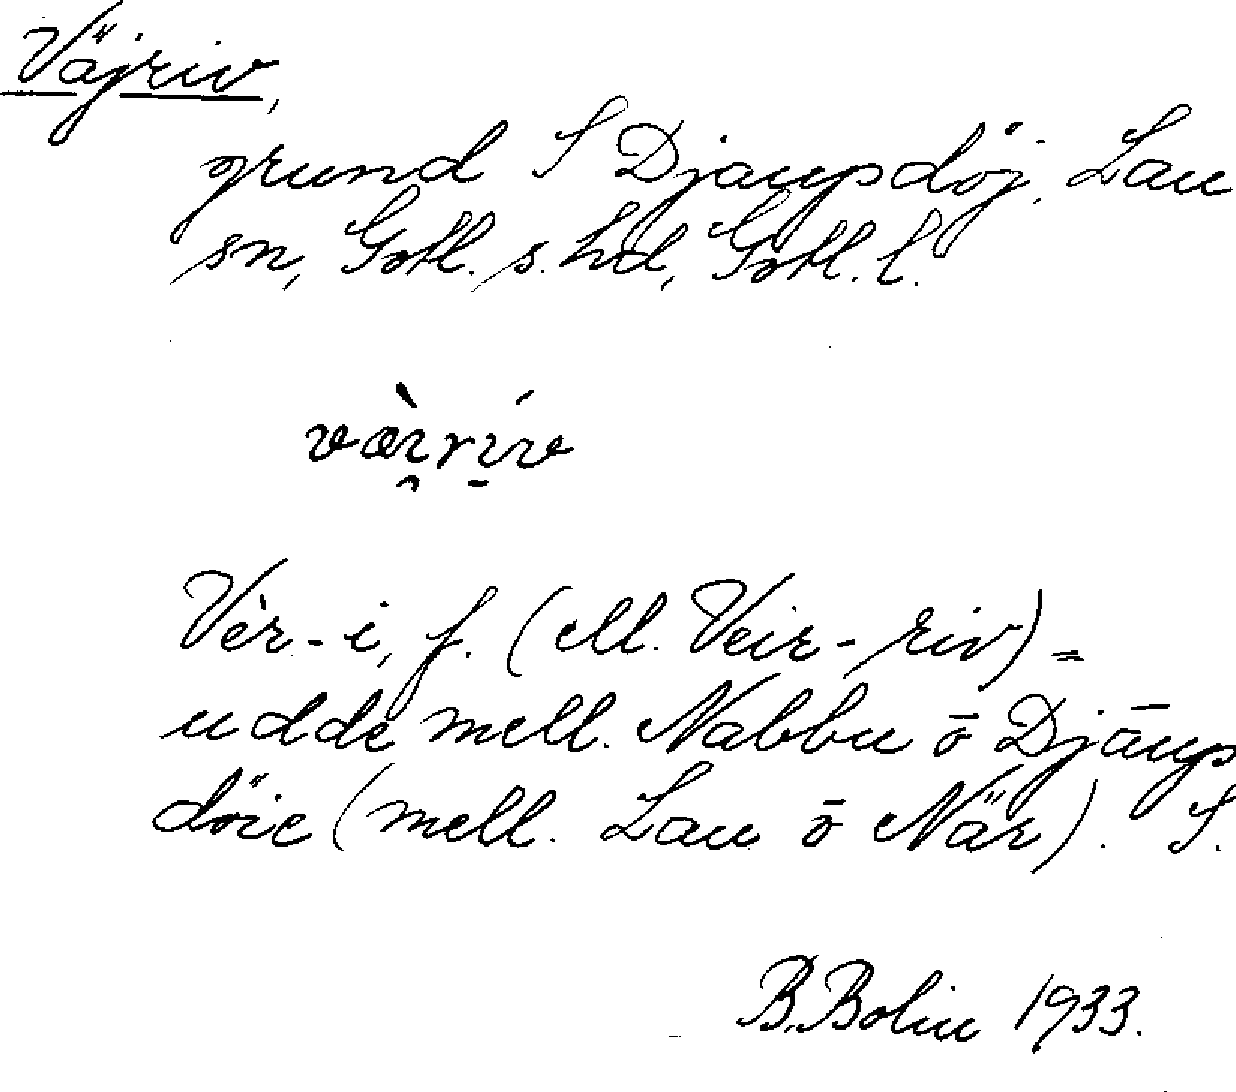 Väjriv,
grund S Djaupdöj, Lau
sn, Gotl. s. hd, Gotl. l.
væ̀i̯rí̱v
Vèr-i, f. (ell. Veir-riv) =
udde mell. Nabbu ō Djāup
döie (mell. Lau ō När). S.
B. Bolin 1933.